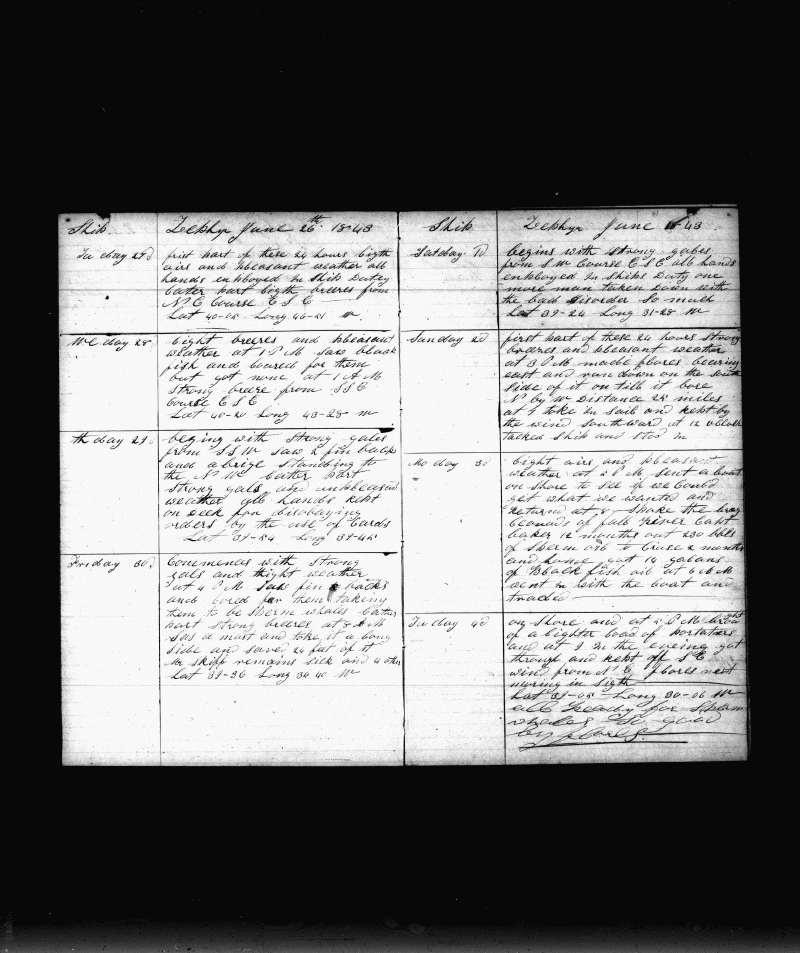 Ship Zephyr June 26th 1843
Tu day 27d first part of these 24 hours ligth
airs and pleasant weather all
hands enployed in Ship Dutey
Later part ligth breeres from
N E Course E S E
Lat 40-05 Long 46-21 W
We day 28 Light breeres and pleasant
weather at 1 P M saw black
fish and loured for them
but got none at 1 A M
strong breare from S S E
Course E S E
Lat 40-20 Long 43-28 W
Th day 29 begins with strong gales
from S S W saw 2 fin backs
and a brige standing to
the N W Latter part
strong gals and unpleasant
weather all hands kept
on deck for disobaying
orders by the use of Cards
Lat 39-54 Long 39-45
Friday 30 Commences with strong
gals and thight weather
at 4 P M saw fin backs
and lored for them taking
them to be sperm whales Latter
part strong breeres at A M
saw a mast and toke it a long
side and saved 24 feet of it
Mr skiff remains sick and 4 other
Lat 39-36 Long 34 40 W
Ship Zephyr June 1843
Satday 1d begins with strong gales
from S W Course E S E all hands
enployed in Ships Duty one
more man taken down with
the bad disorder so much
Lat 39-24 Long 31-28 W
Sunday 2d first part of these 24 hours strong
breeres and pleasant weather
at 3 P M made flores bearing
east and run down on the south
side of it on till it bore
N by W Distance 25 miles
at 9 toke in sail and kept by
the wind southward at 12 oclock
tacked ship and stod in
Mo day 3d Light airs and pleasant
weather at 2 P M sent a boat
on shore to see if we could
get what we wanted and
returned at 8 spoke the brag
of fall rever Capt
baker 12 months out 230 bbls
of sperm oil to cruse 2 months
and home got 14 galons
of Black fish oil at 6 A M
went in with the boat and
traded
Tu day 4d on shore and at 2 P M
of a lighter load of portatoes
and at 9 in the evening got
through and kept off S E
wind from N E flores next
moring in sigth
Lat 39-05 Long 30-06 W
all Ready for Sperm
whales So good
by flores